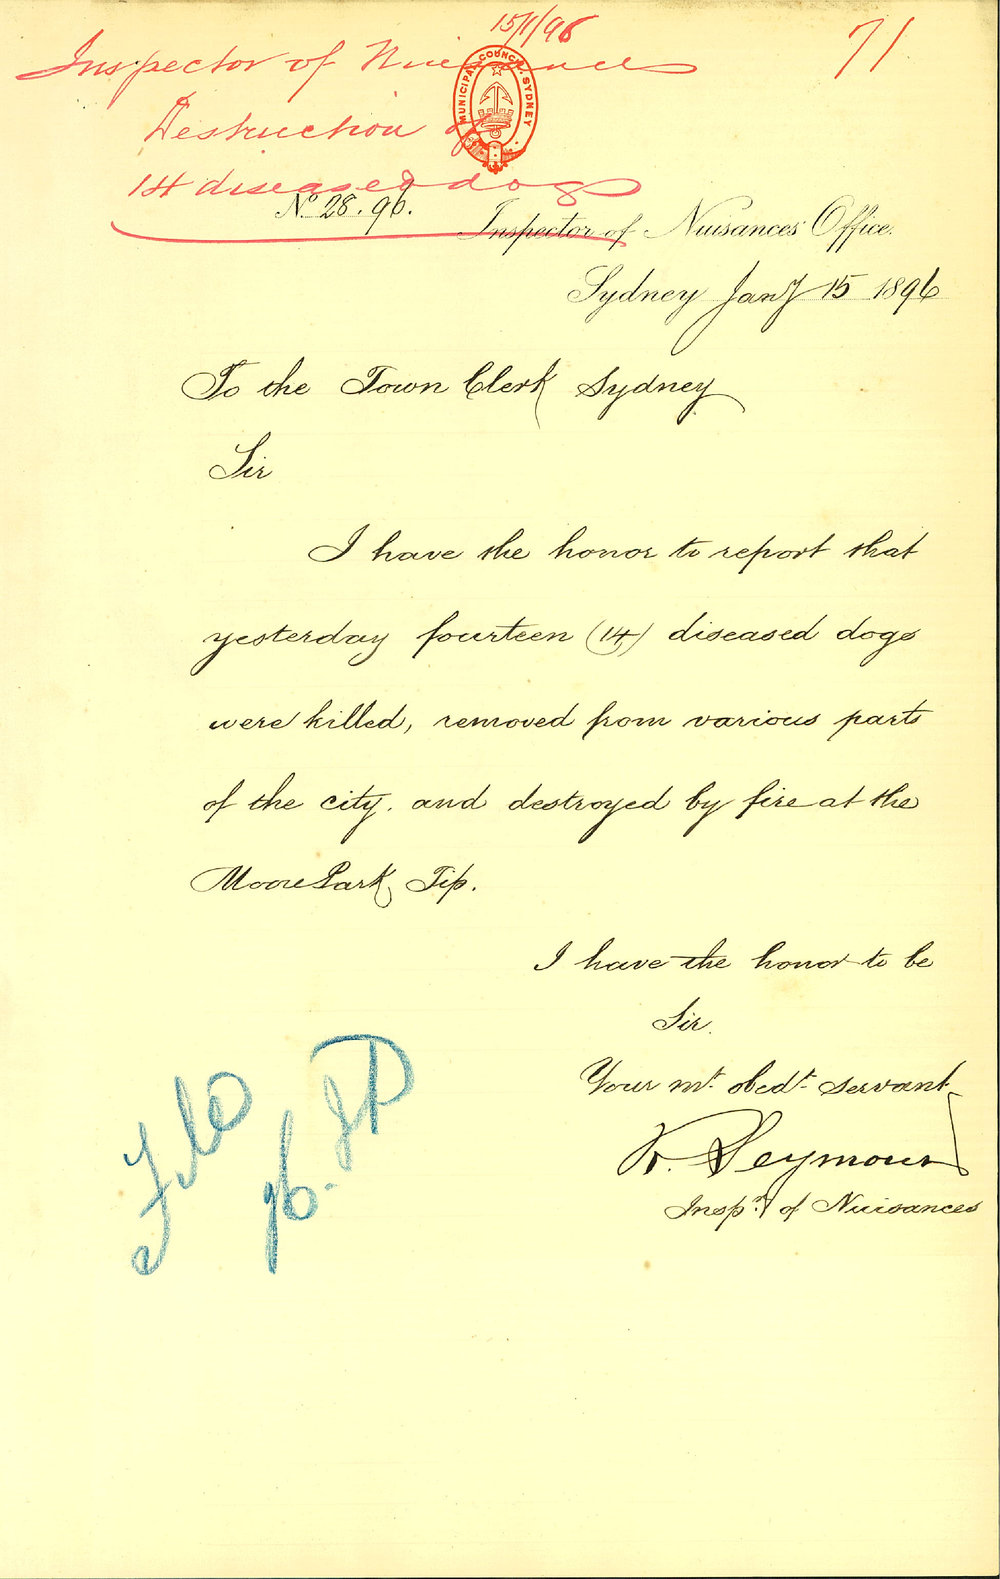 15/1/96
71
Inspector of Nuisances
MUNICIPAL COUNCIL SYDNEY
Destruction of
14 diseased dogs
No. 28. 96.
Inspector of Nuisances' Office.
Sydney Jany 15 1896
To the Town Clerk Sydney
Sir
I have the honor to report that
yesterday fourteen (14) diseased dogs
were killed, removed from various parts
of the city. and destroyed by fire at the
Moore Park Tip.
I have the honor to be
Sir.
Your mt. obedt. servant
R. Seymour
Inspr. of Nuisances
File